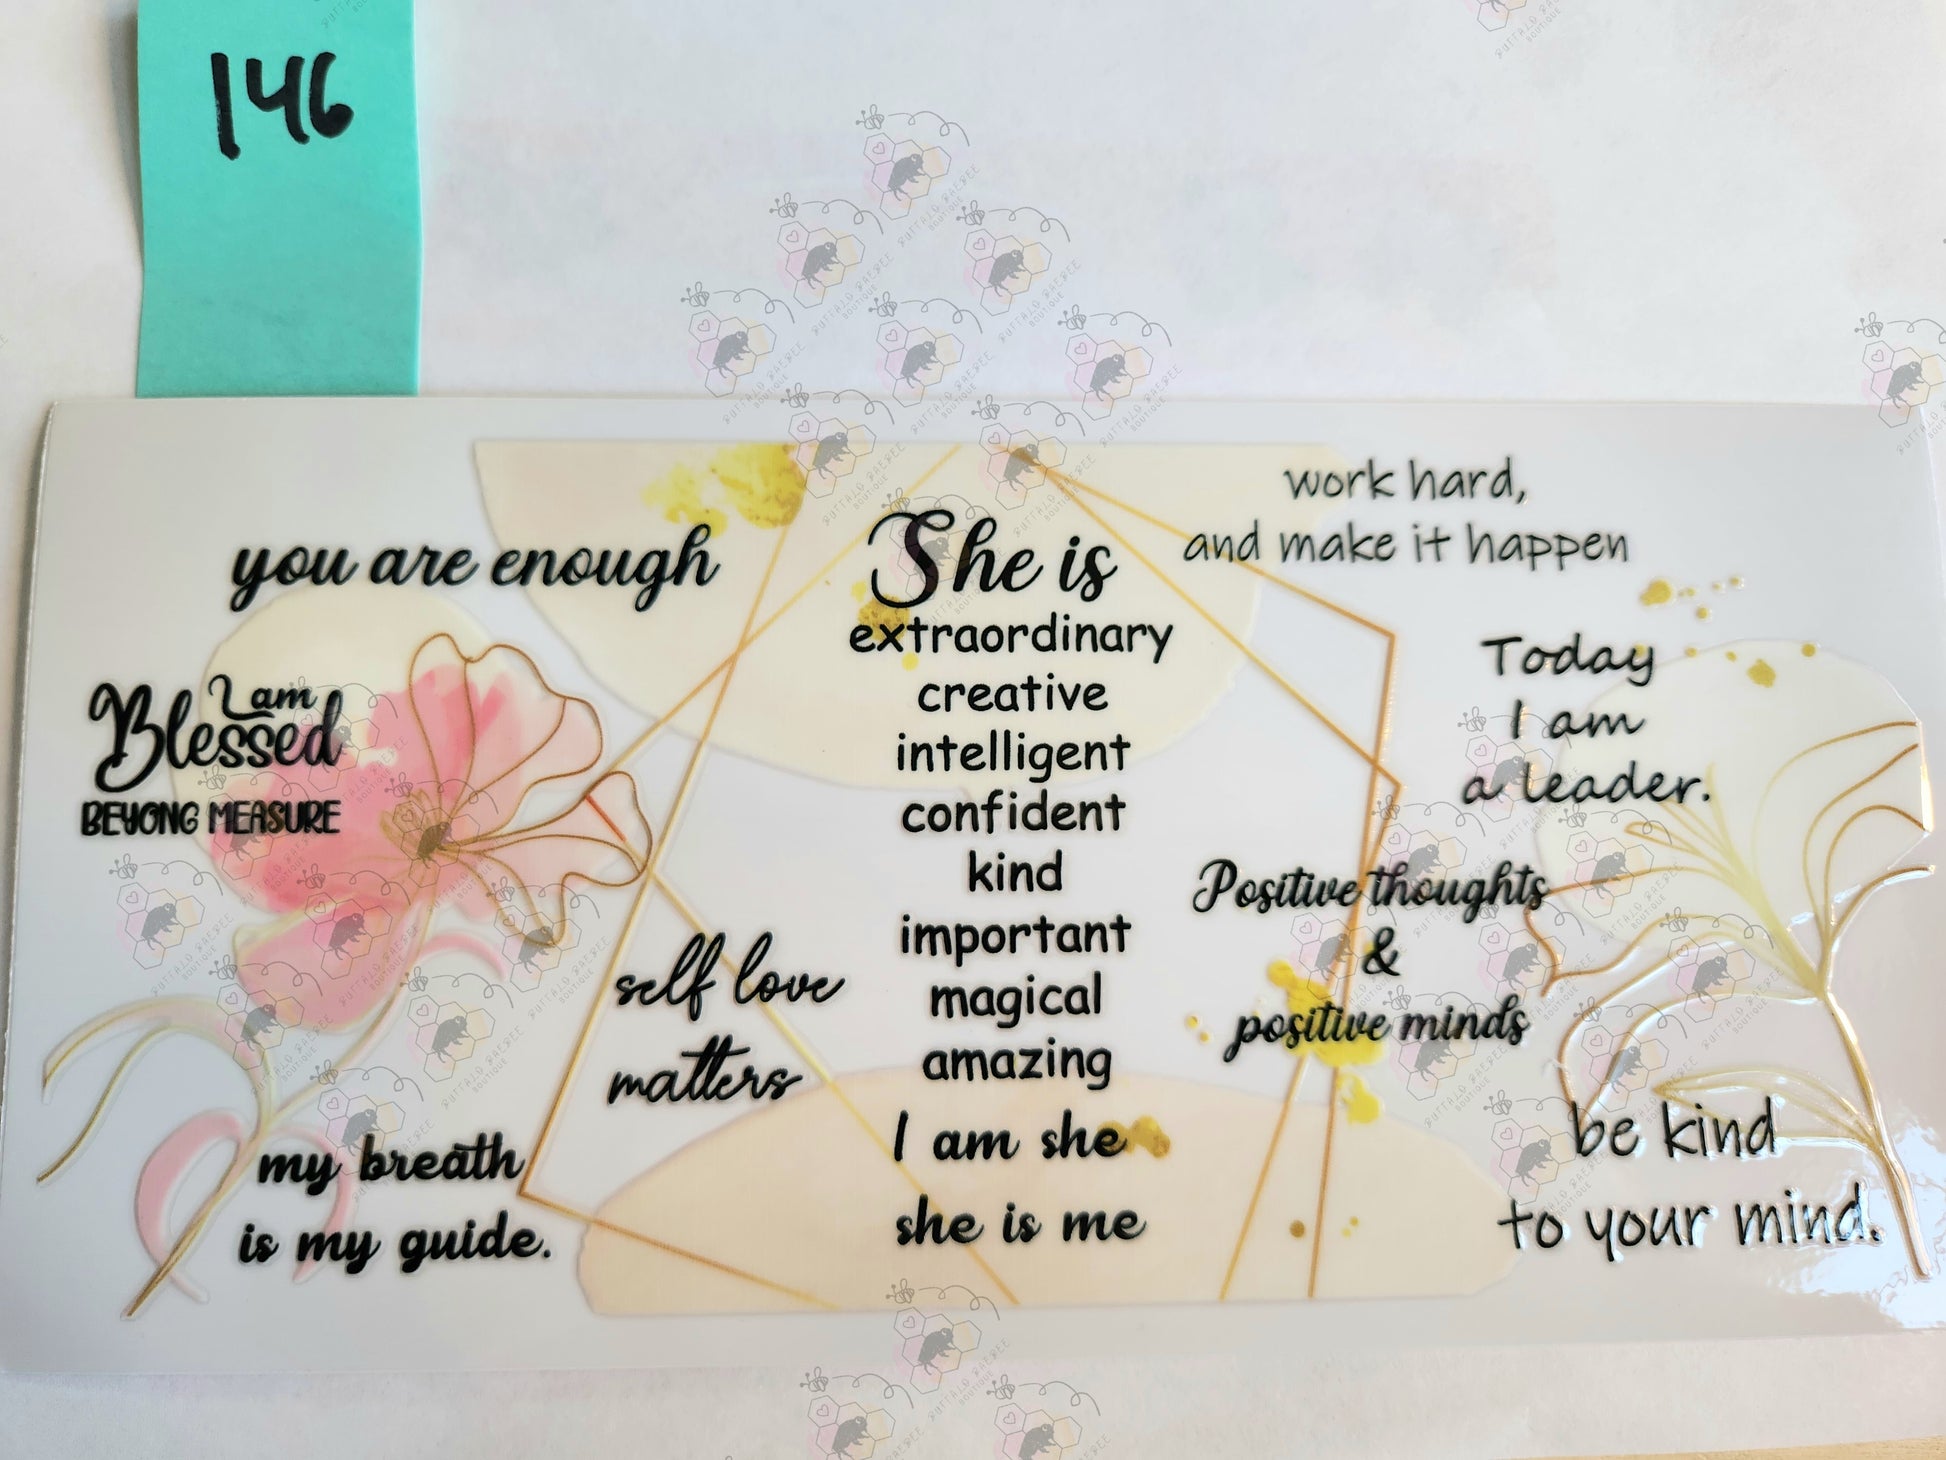 146
you are enough
I am
Blessed
BEYONG MEASURE
my breath
is my guide.
self love
matters
She is
extraordinary
creative
intelligent
confident
kind
important
magical
amazing
I am she
she is me
work hard,
and make it happen
Today
I am
a leader.
Positive thoughts
&
positive minds
be kind
to your mind.
BUFFALO BAEBEE
BOUTIQUE